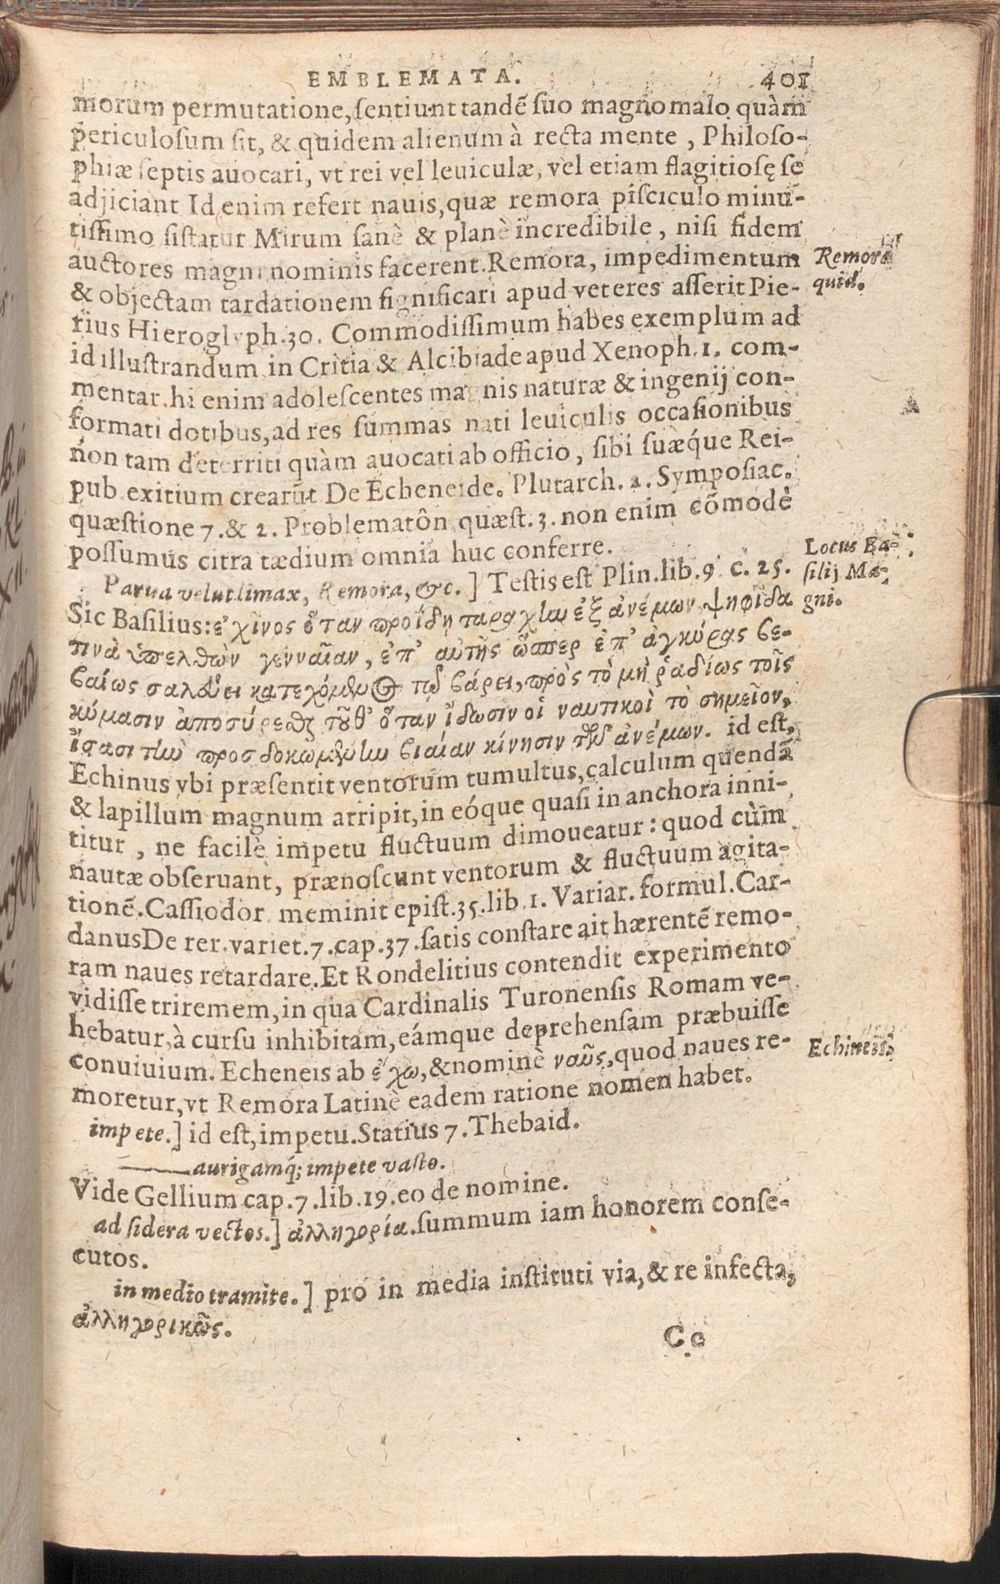 EMBLEMATA. 401
morum permutatione, sentiunt tandẽ suo magno malo quàm
periculosum sit, & quidem alienum à recta mente, Philoso-
phiæ septis auocari, vt rei vel leuiculæ, vel etiam flagitiosę se
adjiciant Id enim refert nauis, quæ remora pisciculo minu-
tissimo sistatur Mirum sanè & planè incredibile, nisi fidem
auctores magni nominis facerent. Remora, impedimentum
Remora
& objectam tardationem significari apud veteres asserit Pie-
quid.
rius Hieroglyph. 30. Commodissimum habes exemplum ad
id illustrandum in Critia & Alcibiade apud Xenoph. 1. com-
mentar. hi enim adolescentes magnis naturæ & ingenij con-
formati dotibus, ad res summas nati leuiculis occasionibus
non tam deterriti quàm auocati ab officio, sibi suæq́ue Rei-
pub exitium crearũt De Echeneide. Plutarch. 2. Symposiac.
quæstione 7. & 2. Problematôn quæst. 3. non enim cõmodè
possumus citra tædium omnia huc conferre.
Parua velut limax, Remora, &c. ] Testis est Plin. lib. 9 c. 25.
Locus Ba-
silij Ma-
gni.
Sic Basilius: ἐχῖνος ὅταν προΐδῃ ταραχὴν ἐξ ἀνέμων, ψηφῖδα
τινὰ ὑπελθὼν γενναῖαν, ἐπ' αὐτῆς ὥσπερ ἐπ' ἀγκύρας βε-
βαίως σαλεύει κατεχόμενος τῷ βάρει, πρὸς τὸ μὴ ῥαδίως τοῖς
κύμασιν ἀποσύρεσθαι τοῦθ' ὅταν ἴδωσιν οἱ ναυτικοὶ τὸ σημεῖον,
ἴσασι τὴν προσδοκωμένην βιαίαν κίνησιν τῶν ἀνέμων. id est,
Echinus vbi præsentit ventorum tumultus, calculum quendã
& lapillum magnum arripit, in eóque quasi in anchora inni-
titur, ne facilè impetu fluctuum dimoueatur: quod cùm
nautæ obseruant, prænoscunt ventorum & fluctuum agita-
tionẽ. Cassiodor meminit epist. 35. lib 1. Variar. formul. Car-
danus De rer. variet. 7. cap. 37. satis constare ait hærentẽ remo-
ram naues retardare. Et Rondelitius contendit experimento
vidisse triremem, in qua Cardinalis Turonensis Romam ve-
hebatur, à cursu inhibitam, eámque deprehensam præbuisse
conuiuium. Echeneis ab ἔχω, & nominè ναῦς, quod naues re-
Echineis.
moretur, vt Remora Latinè eadem ratione nomen habet.
impete.] id est, impetu. Statius 7. Thebaid.
——aurigamq́; impete vasto.
Vide Gellium cap. 7. lib. 19. eo de nomine.
ad sidera vectos.] ἀλληγορία. summum iam honorem conse-
cutos.
in medio tramite.] pro in media instituti via, & re infecta,
ἀλληγορικῶς.
Cc